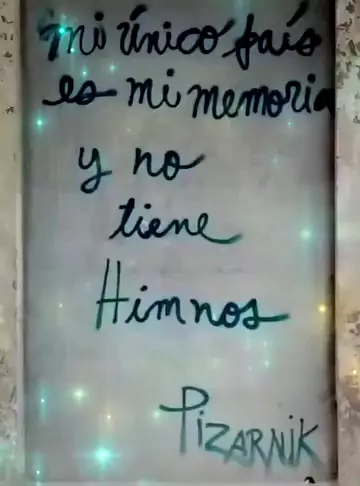 mi único país
es mi memoria
y no
tiene
Himnos
PIZARNIK